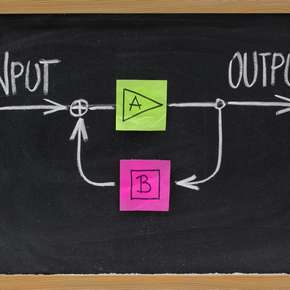 NPUT
OUTPU
A
B